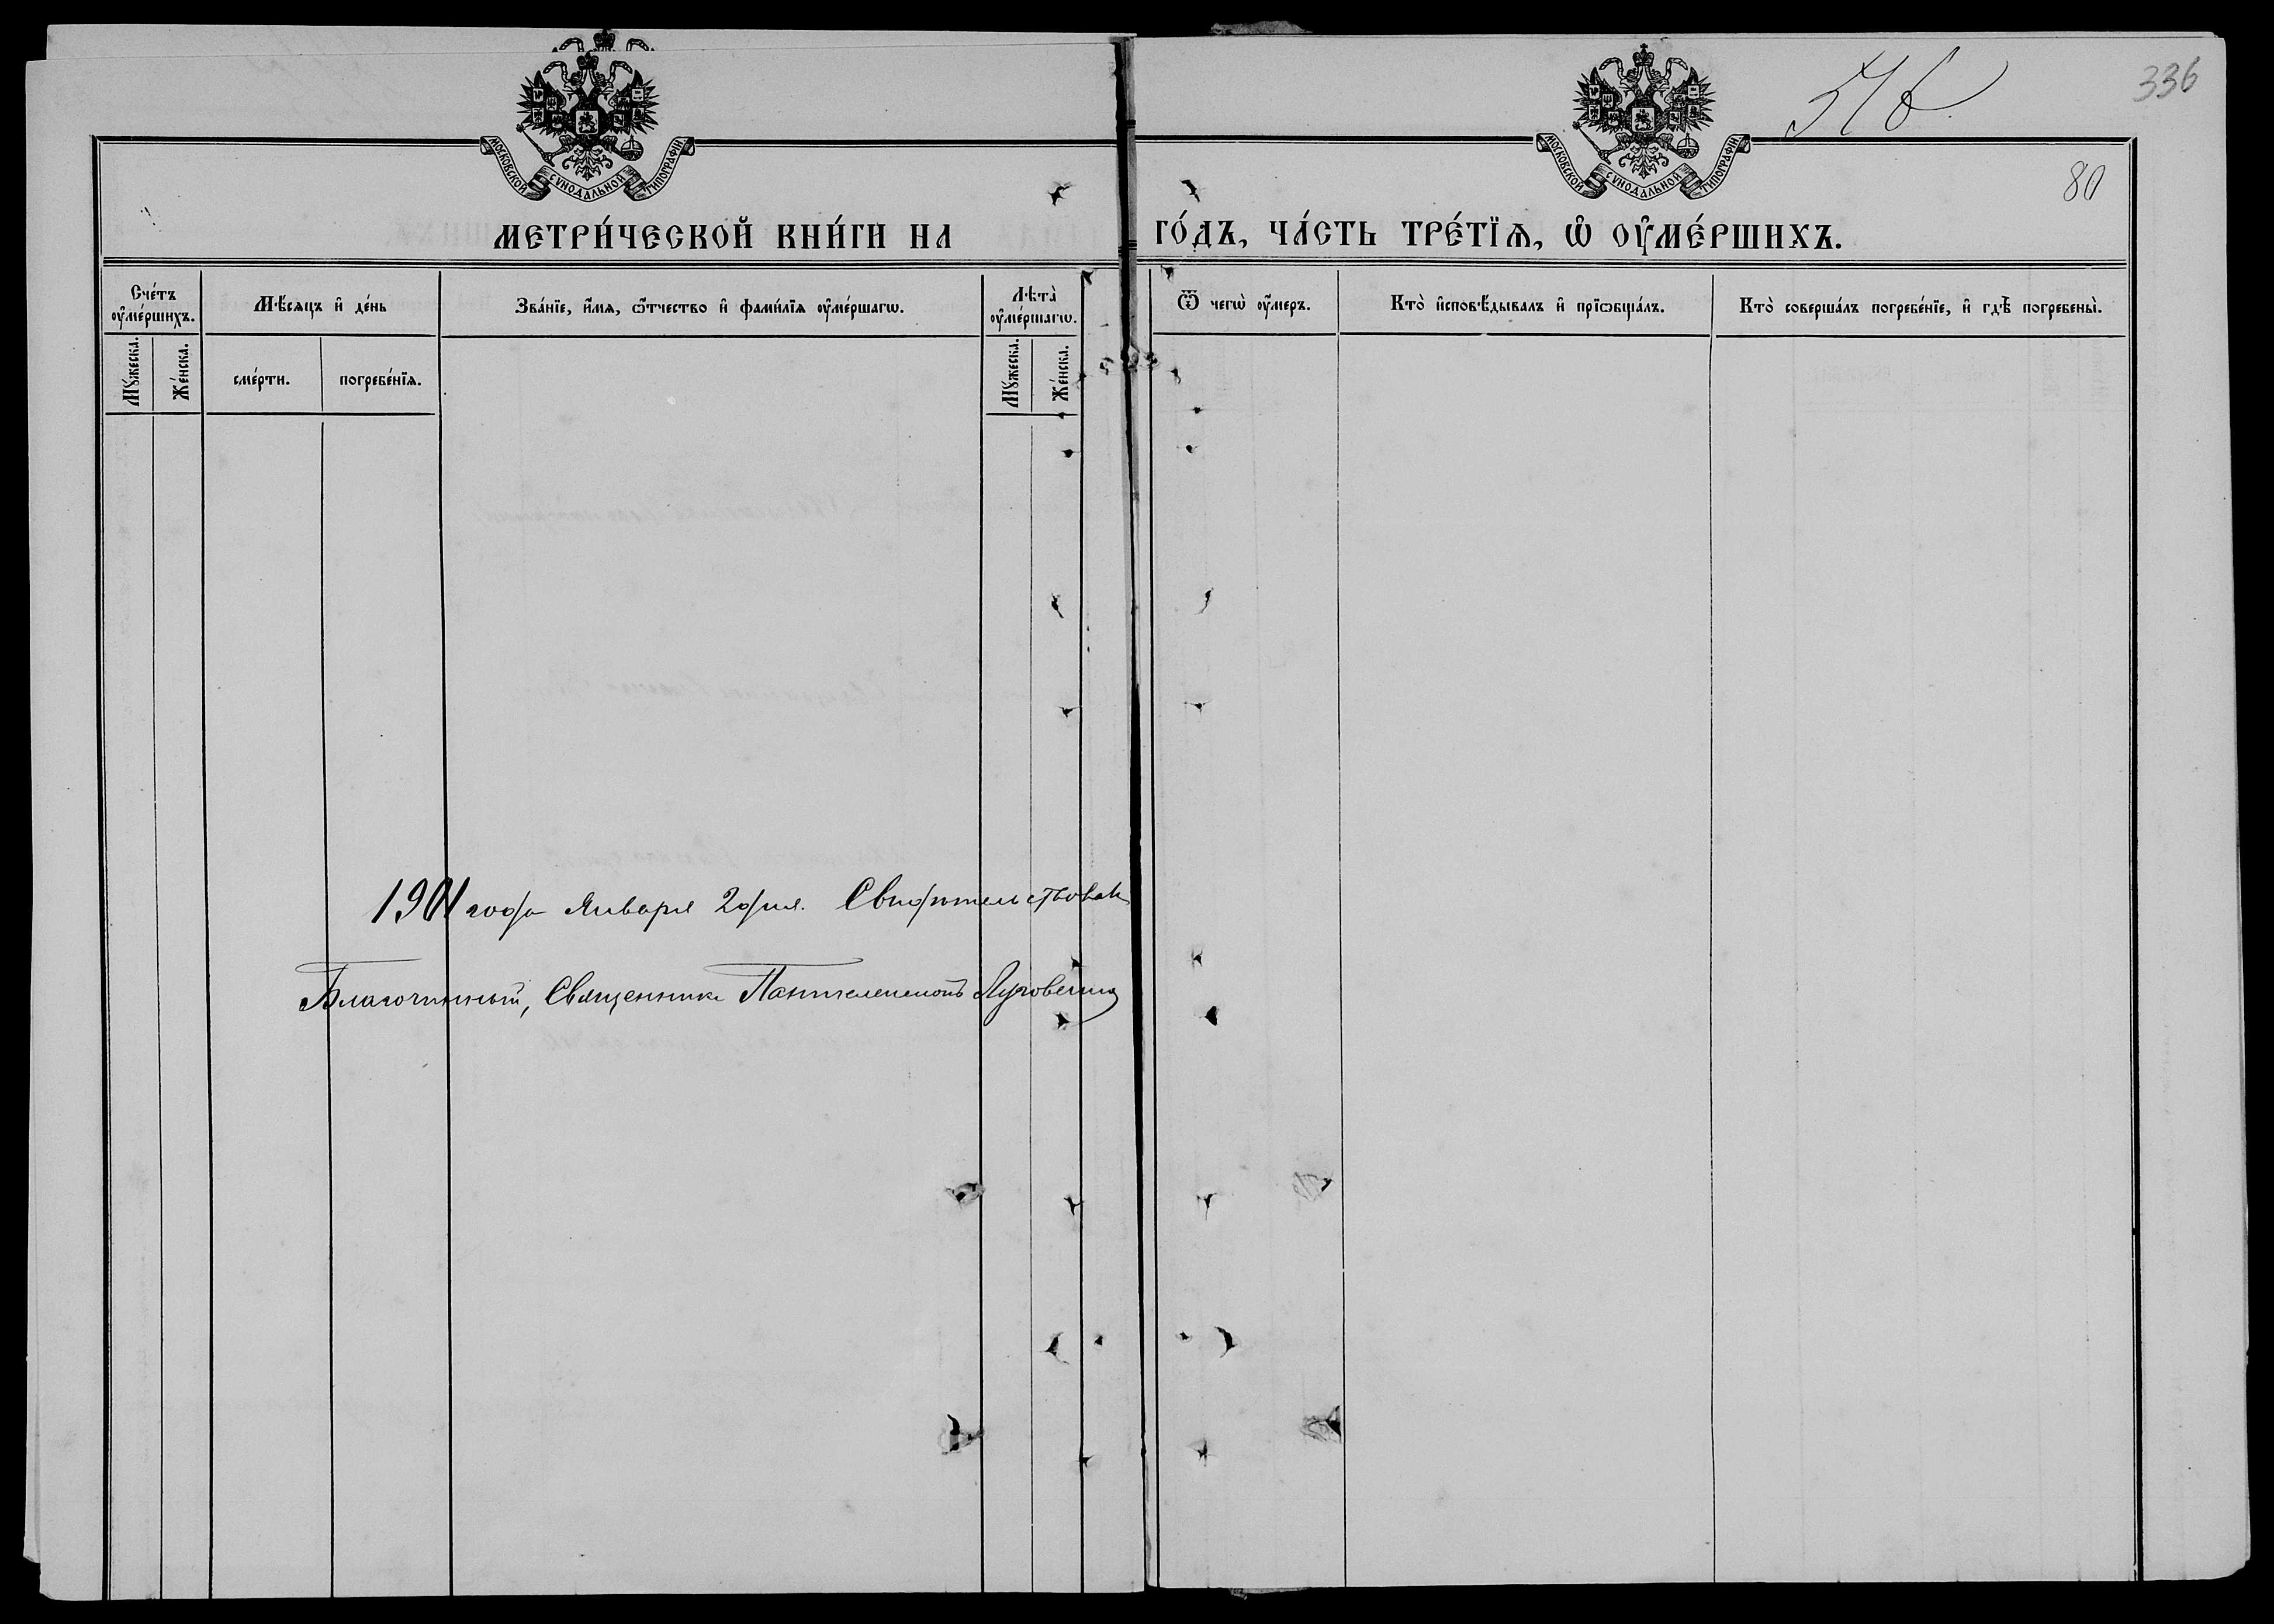 336
80
МОСКОВСКОЙ СѴНОДАЛЬНОЙ ТИПОГРАФІИ.
МОСКОВСКОЙ СѴНОДАЛЬНОЙ ТИПОГРАФІИ.
МЕТРИ́ЧЕСКОЙ КНИ́ГИ НА ГО́ДЪ, ЧА́СТЬ ТРЕ́ТЇѦ, Ѽ ОУ҆МЕ́РШИХЪ.
Сче́тъ оу҆ме́ршихъ.
Мѣ́сѧцъ и҆ де́нь
Зва́нїе, и҆́мѧ, ѻ҆́тчество и҆ фами́лїѧ оу҆ме́ршагѡ.
Лѣта̀ оу҆ме́ршагѡ.
Ѿ чегѡ̀ оу҆́меръ.
Кто̀ и҆сповѣ́дывалъ и҆ прїѡбща́лъ.
Кто̀ соверша́лъ погребе́нїе, и҆ гдѣ̀ погребены̀.
Мꙋ́жеска.
Же́нска.
сме́рти.
погребе́нїѧ.
Мꙋ́жеска.
Же́нска.
1901 года Января 2 дня. Свидѣтельствовалъ
Благочинный, Священникъ Пантелеимонъ